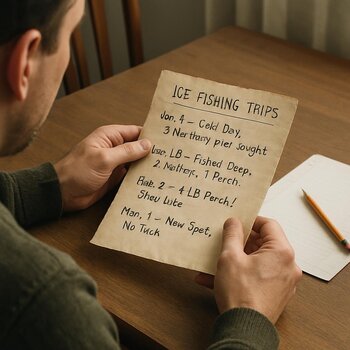 ICE FISHING TRIPS
Jan. 4 – Cold Day,
3 Northany piet sought
LB – Fished Deep,
2 1 Perch.
2 – 4 LB Perch!
Shou Lute
Man, 1 – New Spet,
No Tuck